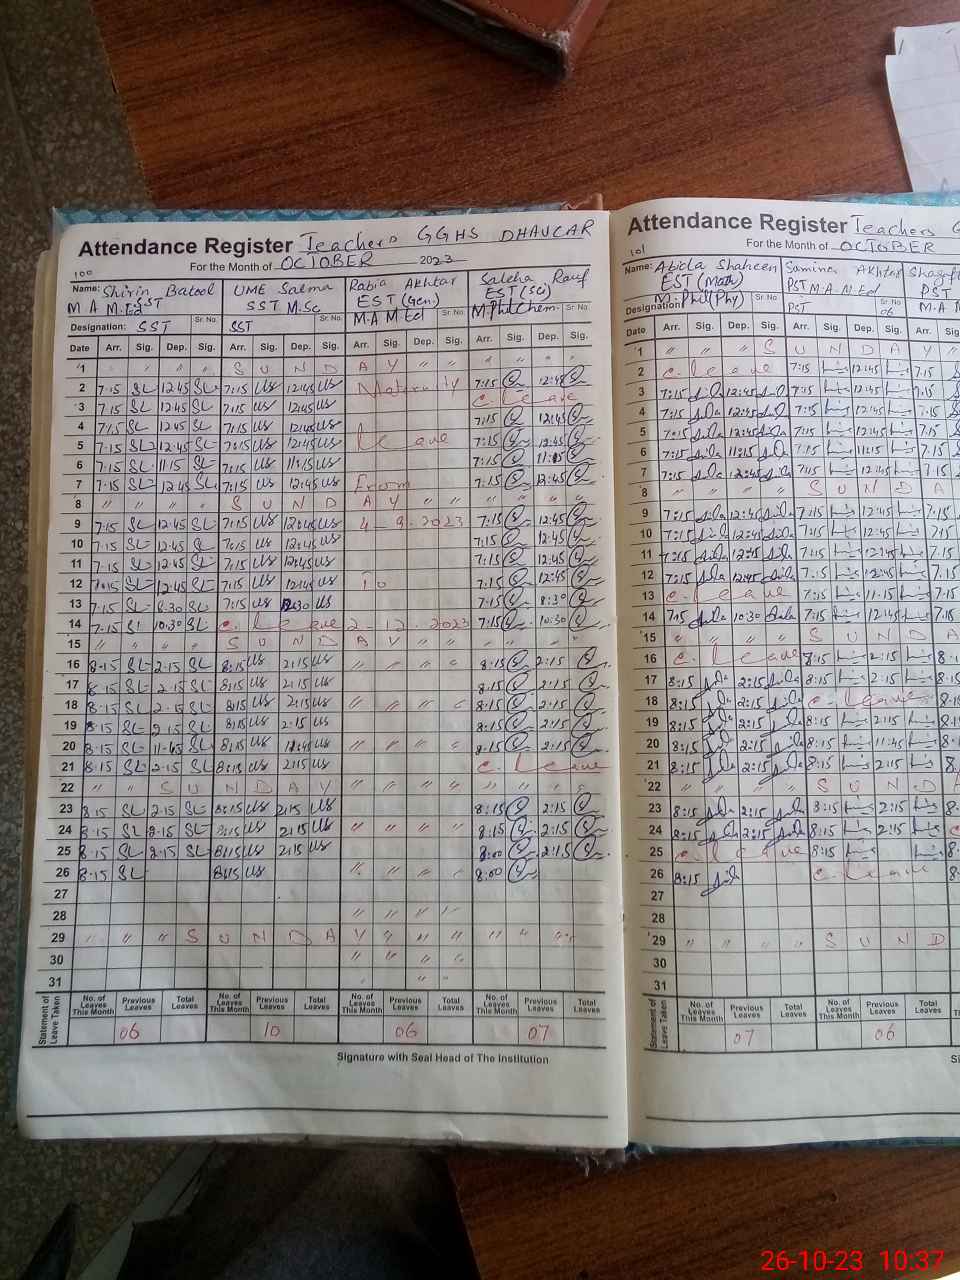 Attendance Register Teachers GGHS DHAUCAR
100
For the Month of OCTOBER 2023
Name: Shirin Batool UME Salma Rabia Akhtar Saleha Rauf
SST SST M.Sc EST (Gen.) EST (Sci)
M A M.Ed M.A M Ed M.Phil Chem.
Designation: SST Sr. No. SST Sr. No. Sr. No. Sr. No.
Date Arr. Sig. Dep. Sig. Arr. Sig. Dep. Sig. Arr. Sig. Dep. Sig. Arr. Sig. Dep. Sig.
1 " " " " S U N D A Y " " " " " "
2 7:15 SL 12:45 SL 7:15 US 12:45 US Maternity 7:15 12:45
3 7:15 SL 12:45 SL 7:15 US 12:45 US C. leave
4 7:15 SL 12:45 SL 7:15 US 12:45 US 7:15 12:45
5 7:15 SL 12:45 SL 7:15 US 12:45 US leave 7:15 12:45
6 7:15 SL 11:15 SL 7:15 US 11:15 US 7:15 11:15
7 7:15 SL 12:45 SL 7:15 US 12:45 US From 7:15 12:45
8 " " " " S U N D A Y " " " " " "
9 7:15 SL 12:45 SL 7:15 US 12:45 US 4-9-2023 7:15 12:45
10 7:15 SL 12:45 SL 7:15 US 12:45 US 7:15 12:45
11 7:15 SL 12:45 SL 7:15 US 12:45 US 7:15 12:45
12 7:15 SL 12:45 SL 7:15 US 12:45 US To 7:15 12:45
13 7:15 SL 8:30 SL 7:15 US 12:30 US 7:15 8:30
14 7:15 SL 10:30 SL C. leave 2-12-2023 7:15 10:30
15 " " " " S U N D A Y " " " " " "
16 8:15 SL 2:15 SL 8:15 US 2:15 US " " " " 8:15 2:15
17 8:15 SL 2:15 SL 8:15 US 2:15 US 8:15 2:15
18 8:15 SL 2:15 SL 8:15 US 2:15 US " " " " 8:15 2:15
19 8:15 SL 2:15 SL 8:15 US 2:15 US 8:15 2:15
20 8:15 SL 11:45 SL 8:15 US 11:45 US " " " " 8:15 2:15
21 8:15 SL 2:15 SL 8:15 US 2:15 US C. leave
22 " " S U N D A Y " " " " " " "
23 8:15 SL 2:15 SL 8:15 US 2:15 US 8:15 2:15
24 8:15 SL 2:15 SL 8:15 US 2:15 US " " " " 8:15 2:15
25 8:15 SL 2:15 SL 8:15 US 2:15 US 8:00 2:15
26 8:15 SL 8:15 US " " " " 8:00
27
28 " " " "
29 " " " S U N D A Y " " " " " " "
30 " " " "
31 " "
Statement of Leave Taken
No. of Leaves This Month Previous Leaves Total Leaves No. of Leaves This Month Previous Leaves Total Leaves No. of Leaves This Month Previous Leaves Total Leaves No. of Leaves This Month Previous Leaves Total Leaves
06 10 06 07
Signature with Seal Head of The Institution
Attendance Register Teachers G
101
For the Month of OCTOBER
Name: Abida Shaheen Samina Akhtar
EST (Math) PST M.A. M.Ed PST
Designation M.Phil (Phy) PST Sr. No. 06 M.A
Date Arr. Sig. Dep. Sig. Arr. Sig. Dep. Sig. Arr.
1 " " " S U N D A Y "
2 C. leave 7:15 12:45 7:15
3 7:15 12:45 7:15 12:45 7:15
4 7:15 12:45 7:15 12:45 7:15
5 7:15 12:45 7:15 12:45 7:15
6 7:15 11:15 7:15 11:15 7:15
7 7:15 12:45 7:15 12:45 7:15
8 " " " " S U N D A
9 7:15 12:45 7:15 12:45 7:15
10 7:15 12:45 7:15 12:45 7:15
11 7:15 12:45 7:15 12:45 7:15
12 7:15 12:45 7:15 12:45 7:15
13 C. leave 7:15 11:15 7:15
14 7:15 10:30 7:15 12:45 7:15
15 " " " " S U N D A
16 C. leave 8:15 2:15
17 8:15 2:15 8:15 2:15
18 8:15 2:15 C. leave
19 8:15 2:15 8:15 2:15
20 8:15 2:15 8:15 11:45
21 8:15 2:15 8:15 2:15
22 " " " " S U N D
23 8:15 2:15 8:15 2:15
24 8:15 2:15 8:15 2:15
25 C. leave 8:15
26 8:15 C. leave
27
28
29 " " " " S U N D
30
31
Statement of Leave Taken
No. of Leaves This Month Previous Leaves Total Leaves No. of Leaves This Month Previous Leaves Total Leaves
07 06
26-10-23 10:37